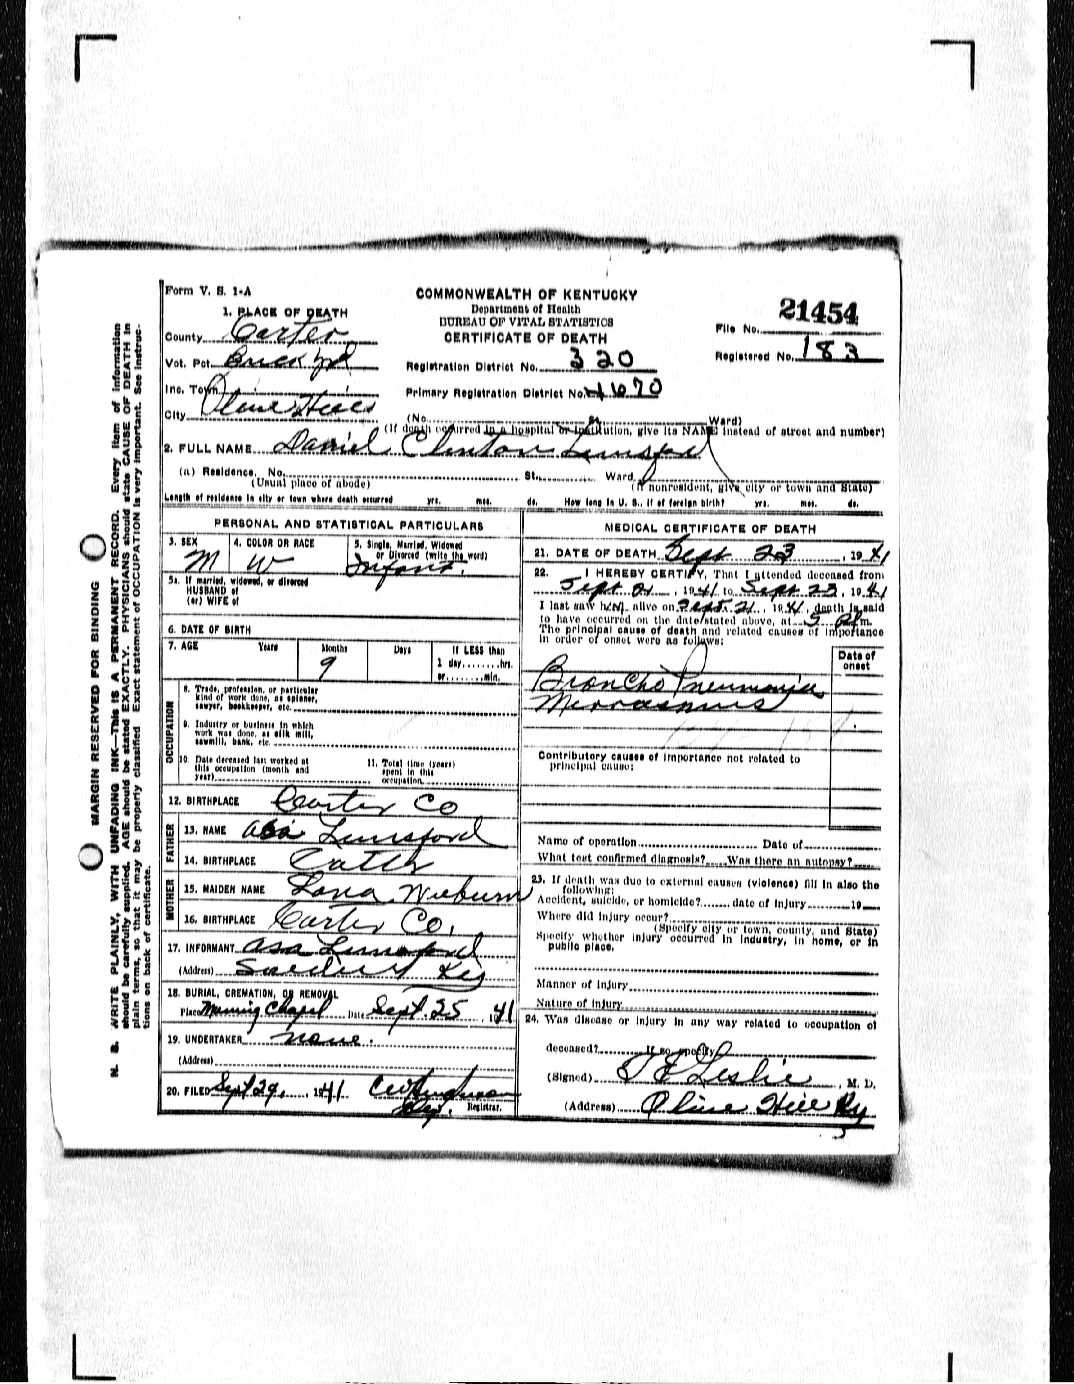 Form V. S. 1-A
COMMONWEALTH OF KENTUCKY
Department of Health
BUREAU OF VITAL STATISTICS
CERTIFICATE OF DEATH
21454
File No.
Registered No. 183
1. PLACE OF DEATH
County Carter
Vot. Pct.
Inc. Town
City Olive Hill
Registration District No. 320
Primary Registration District No. 4670
(No. St. Ward)
(If death occurred in a hospital or institution, give its NAME instead of street and number)
2. FULL NAME Daniel Clinton Lunsford
(a) Residence. No. St. Ward
(Usual place of abode) (If nonresident, give city or town and State)
Length of residence in city or town where death occurred yrs. mos. ds. How long in U. S., if of foreign birth? yrs. mos. ds.
PERSONAL AND STATISTICAL PARTICULARS
3. SEX
M
4. COLOR OR RACE
W
5. Single, Married, Widowed
or Divorced (write the word)
Infant.
5a. If married, widowed, or divorced
HUSBAND of
(or) WIFE of
6. DATE OF BIRTH
7. AGE Years Months Days If LESS than
9 1 day,........hrs.
or........min.
OCCUPATION
8. Trade, profession, or particular
kind of work done, as spinner,
sawyer, bookkeeper, etc.
9. Industry or business in which
work was done, as silk mill,
sawmill, bank, etc.
10. Date deceased last worked at
this occupation (month and
year)
11. Total time (years)
spent in this
occupation
12. BIRTHPLACE Carter Co
FATHER
13. NAME Asa Lunsford
14. BIRTHPLACE
MOTHER
15. MAIDEN NAME
16. BIRTHPLACE Carter Co.
17. INFORMANT Asa Lunsford
(Address) Ky
18. BURIAL, CREMATION, OR REMOVAL
Place Chapel Date Sept. 25, 41
19. UNDERTAKER none.
(Address)
20. FILED Sept 29, 1941
Registrar.
MEDICAL CERTIFICATE OF DEATH
21. DATE OF DEATH Sept 23, 1941
22. I HEREBY CERTIFY, That I attended deceased from
Sept 21, 1941 to Sept 23, 1941
I last saw him alive on Sept. 21, 1941, death is said
to have occurred on the date stated above, at 5 P.m.
The principal cause of death and related causes of importance
in order of onset were as follows:
Date of
onset
Broncho Pneumonia
Contributory causes of importance not related to
principal cause:
Name of operation Date of
What test confirmed diagnosis? Was there an autopsy?
23. If death was due to external causes (violence) fill in also the
following:
Accident, suicide, or homicide? date of injury 19
Where did injury occur?
(Specify city or town, county, and State)
Specify whether injury occurred in industry, in home, or in
public place.
Manner of injury
Nature of injury
24. Was disease or injury in any way related to occupation of
deceased? If so, specify
(Signed) Leslie, M. D.
(Address) Olive Hill Ky
MARGIN RESERVED FOR BINDING
N. B. WRITE PLAINLY, WITH UNFADING INK—THIS IS A PERMANENT RECORD. Every item of information
should be carefully supplied. AGE should be stated EXACTLY. PHYSICIANS should state CAUSE OF DEATH in
plain terms, so that it may be properly classified. Exact statement of OCCUPATION is very important. See instruc-
tions on back of certificate.